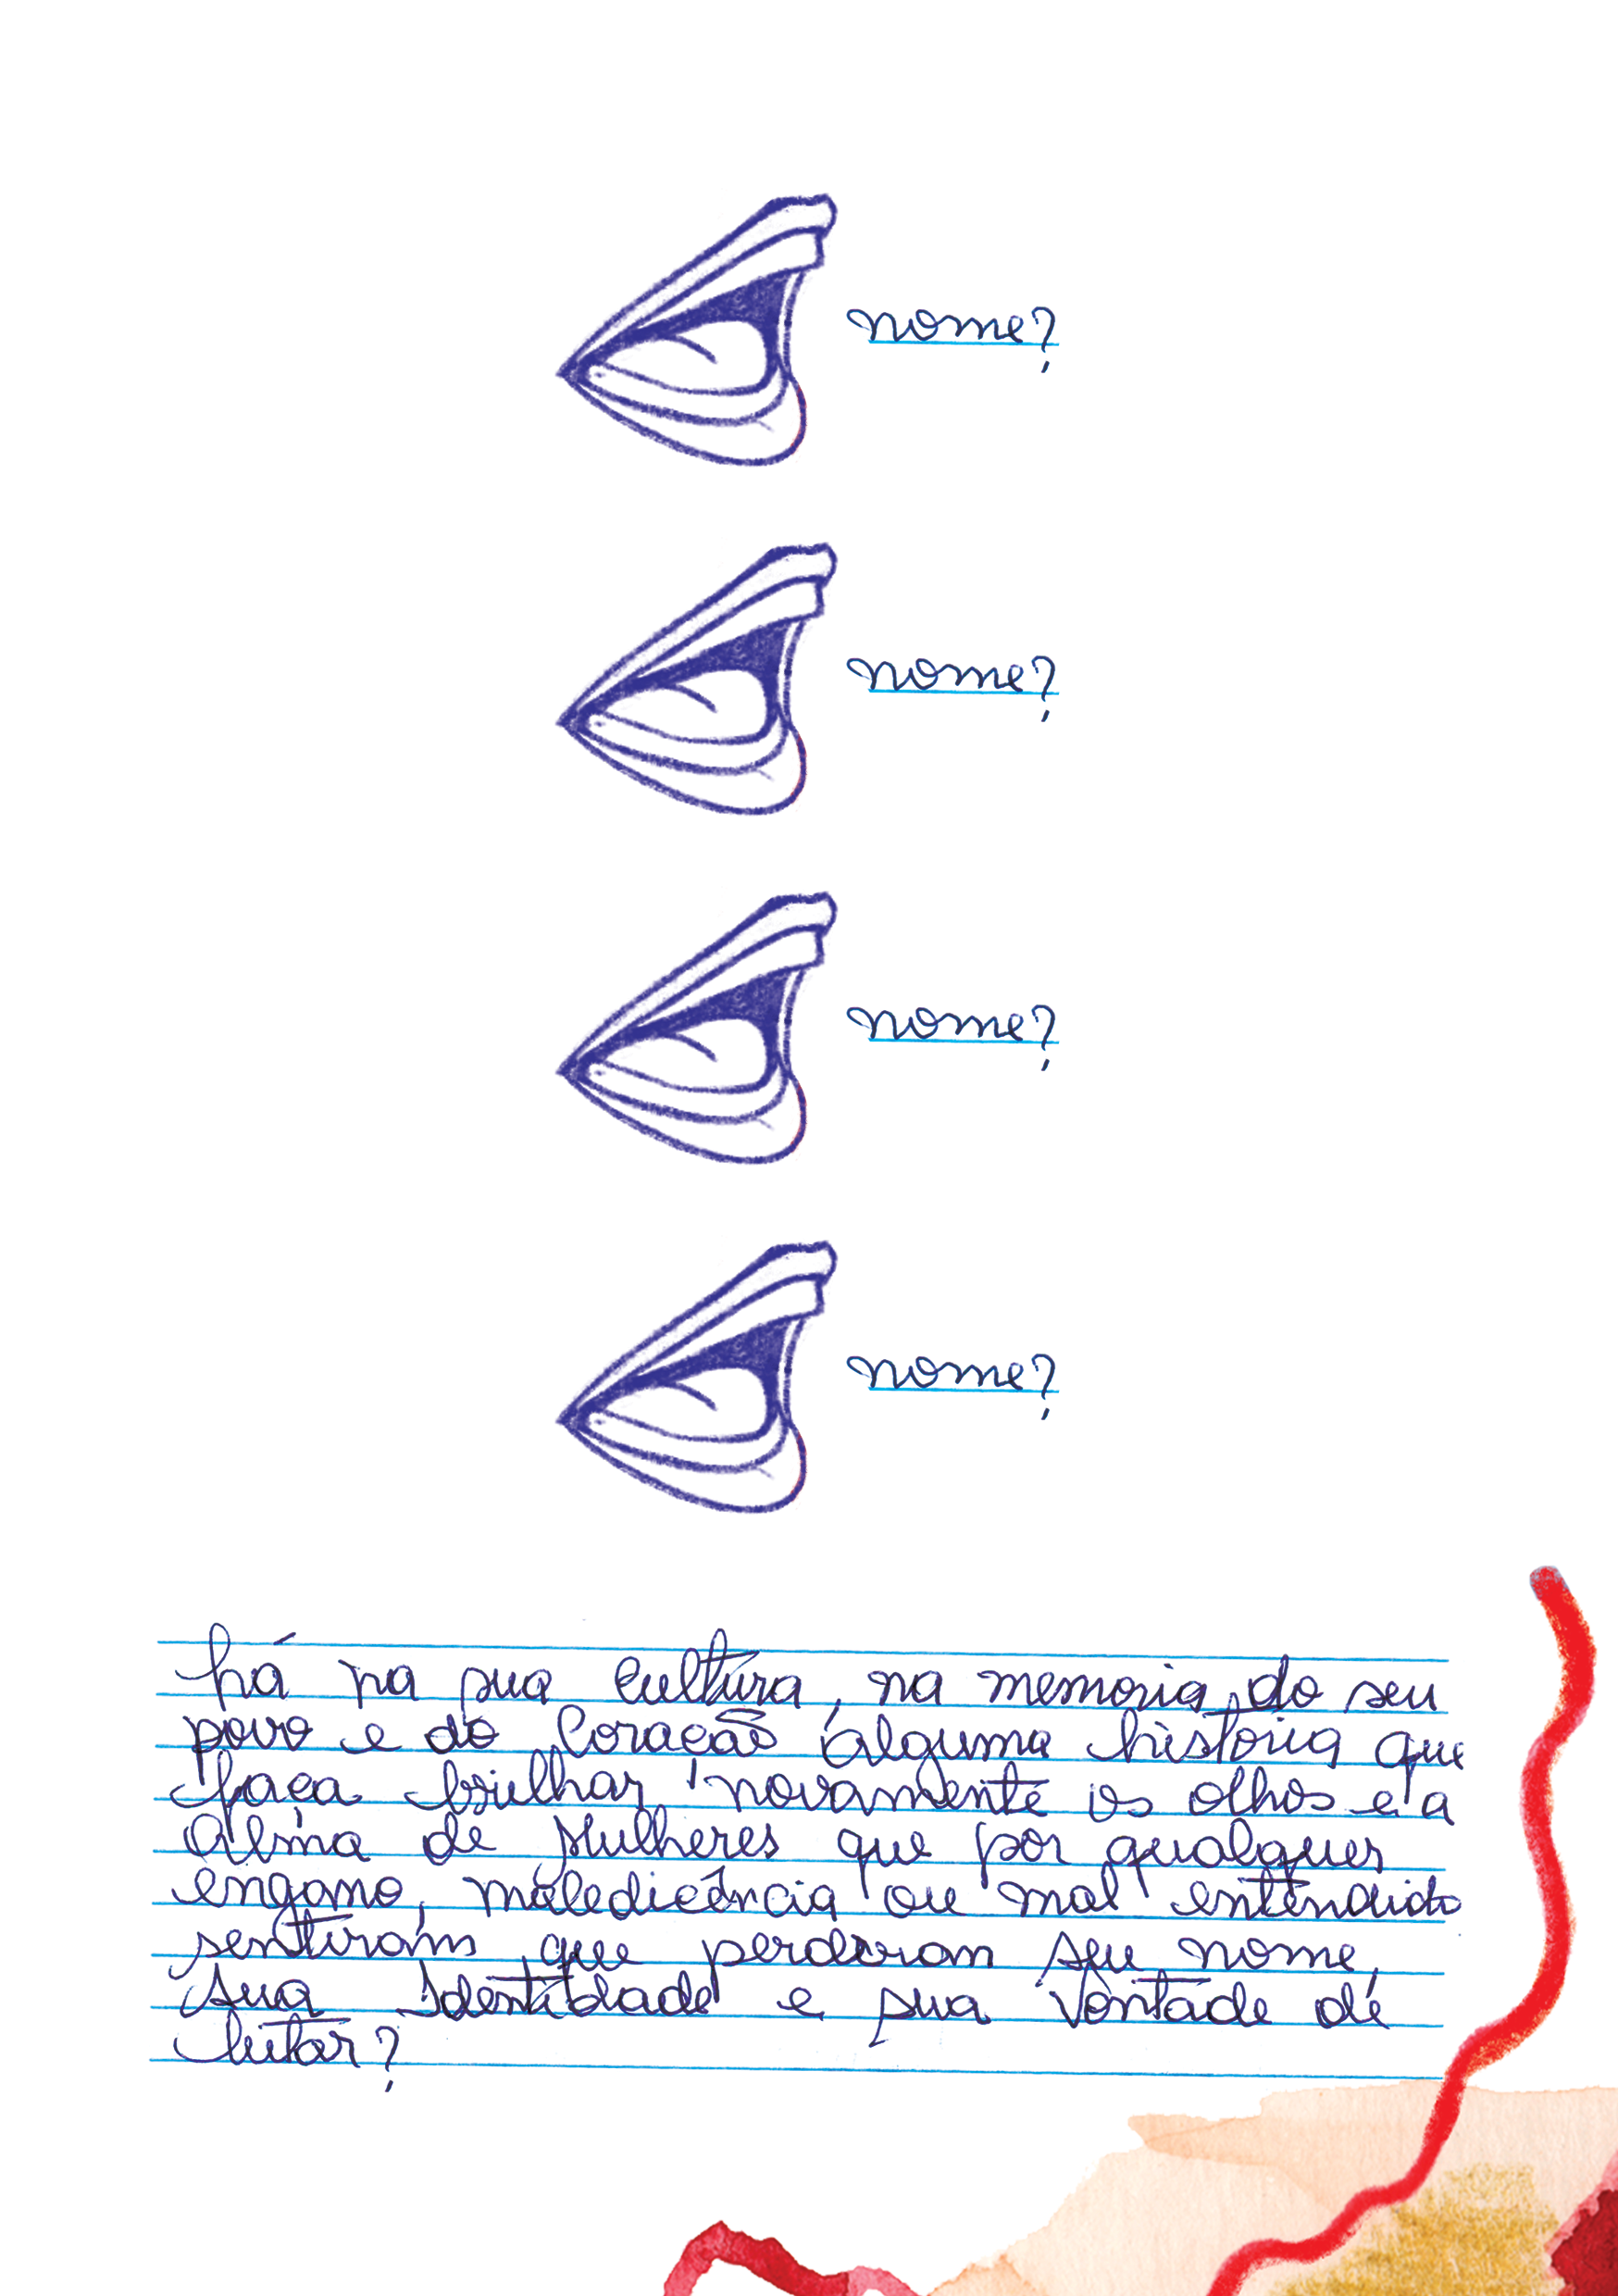 nome?
nome?
nome?
nome?
há na sua cultura, na memoria do seu
povo e do Coração alguma história que
faça brilhar novamente os olhos e a
Alma de Mulheres que por qualquer
engano, maledicência ou mal entendido
sentiram que perderam seu nome,
sua Identidade e sua Vontade de
lutar?